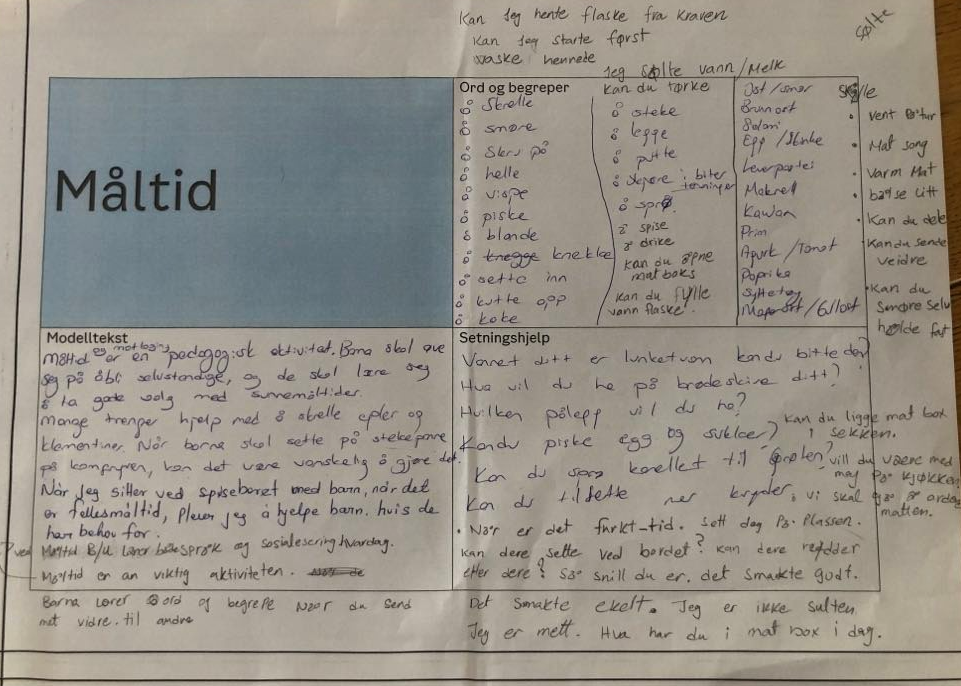 Kan Jeg hente flaske fra kraven
Kan Jeg starte først
waske hennede
Jeg sølte vann/Melk
Sølte
Måltid
Ord og begreper
å skrelle
å smøre
å skru på
å helle
å vispe
å piske
å blande
å knegge knekke
å sette inn
å kutte opp
å koke
kan du tørke
å steke
å legge
å putte
å skjære i biter
terninger
å sprø
å spise
å drike
kan du åpne
matboks
kan du fylle
vann flaske!
Ost/smør
Brunost
Salami
Egg/Skinke
Leverpostei
Makrell
Kaviar
Prim
Agurk/Tomat
Paprika
Syltetøy
Skylle
• Vent på tur
• Mat song
• Varm Mat
• Kan du dele
Kan du sende
veidre
• Kan du
Smøre Selv
holde fast
Modelltekst
Måltid og matlaging er en pedagogisk aktivitet. Barna skal øve
seg på å bli selvstendige, og de skal lære seg
å ta gode valg med sunnemåltider.
Mange trenger hjelp med å skrelle epler og
klementiner. Når barna skal sette på stekepanne
på komfyren, kan det være vanskelig å gjøre det.
Når Jeg sitter ved spisebordet med barn, når det
er fellesmåltid, pleier jeg å hjelpe barn. hvis de
har behov for.
ved Måltid B/U lærer både språk og sosialesering hvardag.
Måltid er an viktig aktiviteten. Når de
Barna lærer ord og begrepe når du send
mat vidre. til andre
Setningshjelp
Vannet ditt er lunketvan kan du bitte det?
Hva vil du ha på brødeskive ditt?
Hvilken pålegg vil du ha?
Kan du piske egg og sukker?
kan du ligge mat box
i sekken.
Kan du til
vill du være med
meg på kjøkken
Kan du tilsette mer krydder, vi skal gjøre å ordne
matten.
• Når er det frukt-tid. Sett deg på Plassen.
Kan dere sette ved bordet? kan dere rydder
etter dere? Så snill du er. det smakte godt.
Det smakte ekelt. Jeg er ikke sulten
Jeg er mett. Hva har du i mat box i dag.